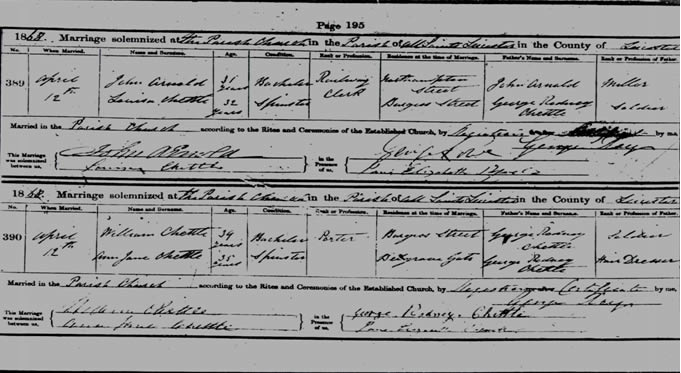 Page 195
1868. Marriage solemnized at the Parish Church in the Parish of All Saints Leicester in the County of Leicester
No. When Married. Name and Surname. Age. Condition. Rank or Profession. Residence at the time of Marriage. Father's Name and Surname. Rank or Profession of Father.
389 April 12th John Arnold 31 years Bachelor Railway Clerk Northampton Street John Arnold Miller
Louisa Chettle 32 years Spinster Burgess Street George Rodney Chettle Soldier
Married in the Parish Church according to the Rites and Ceremonies of the Established Church, by by me,
This Marriage was solemnized between us, John Arnold in the Presence of us,
Louisa Chettle Elizabeth
1868. Marriage solemnized at the Parish Church in the Parish of All Saints Leicester in the County of Leicester
No. When Married. Name and Surname. Age. Condition. Rank or Profession. Residence at the time of Marriage. Father's Name and Surname. Rank or Profession of Father.
390 April 12th William Chettle 34 years Bachelor Porter Burgess Street George Rodney Chettle Soldier
Ann Jane Chettle 35 years Spinster Belgrave Gate George Rodney Chettle Hair Dresser
Married in the Parish Church according to the Rites and Ceremonies of the Established Church, by Certificate by me,
This Marriage was solemnized between us, William Chettle in the Presence of us, George Rodney Chettle
Ann Jane Chettle